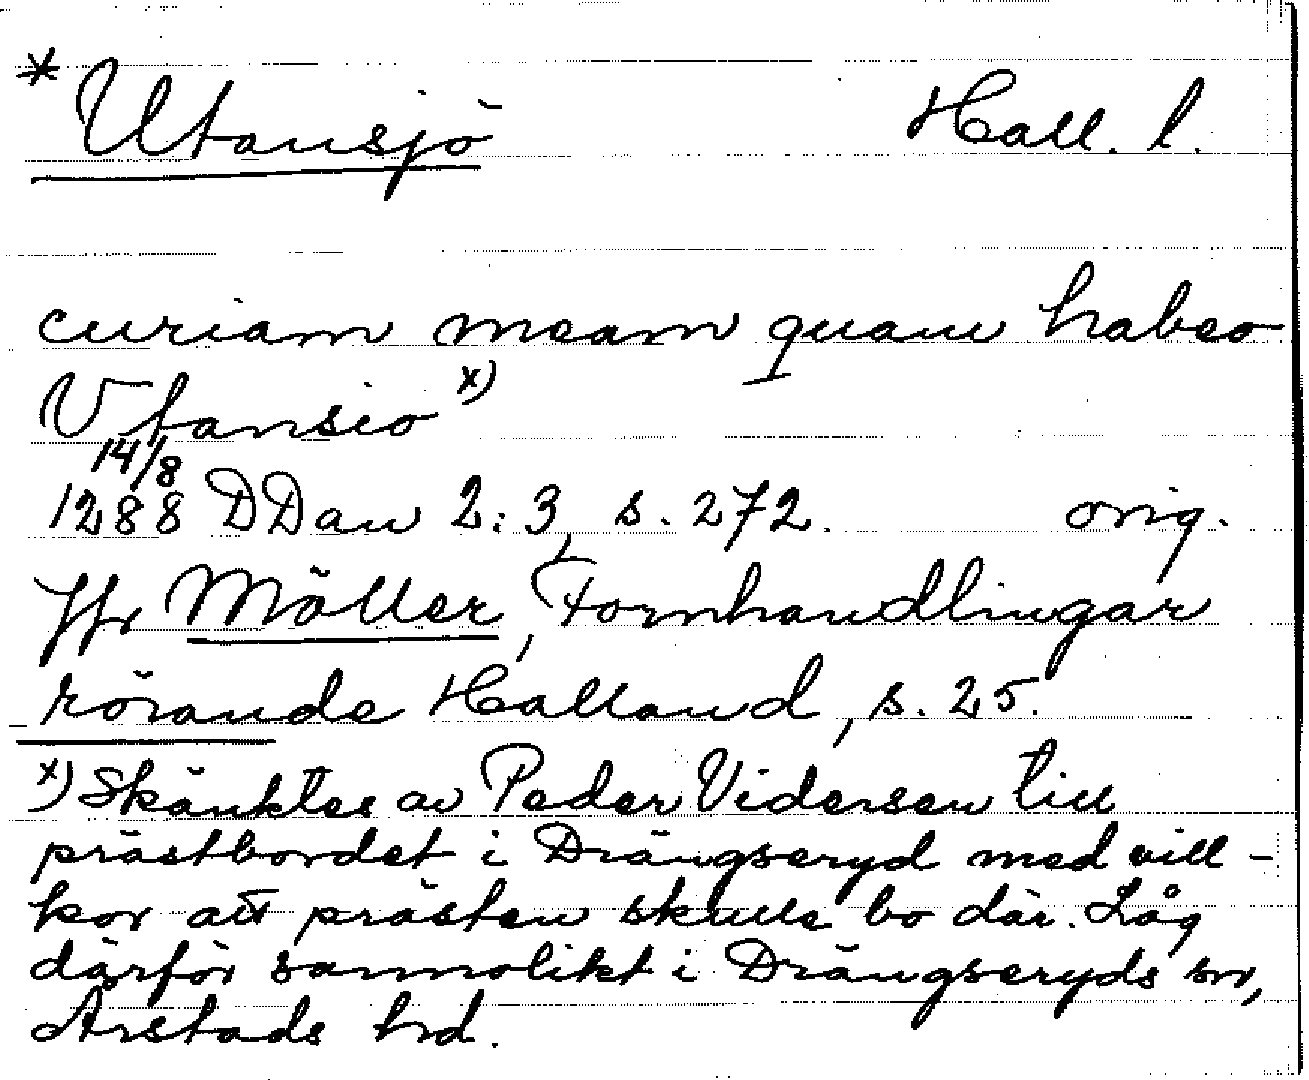 * Utansjö Hall. l.
curiam meam quam habeo
Vtansio x)
14/8
1288 DDan 2:3, s. 272. orig.
Jfr Möller, Fornhandlingar
rörande Halland, s. 25.
x) Skänktes av Peder Vidersen till
prästbordet i Drängseryd med vill-
kor att prästen skulle bo där. Låg
därför sannolikt i Drängseryds sn,
Årstads hd.